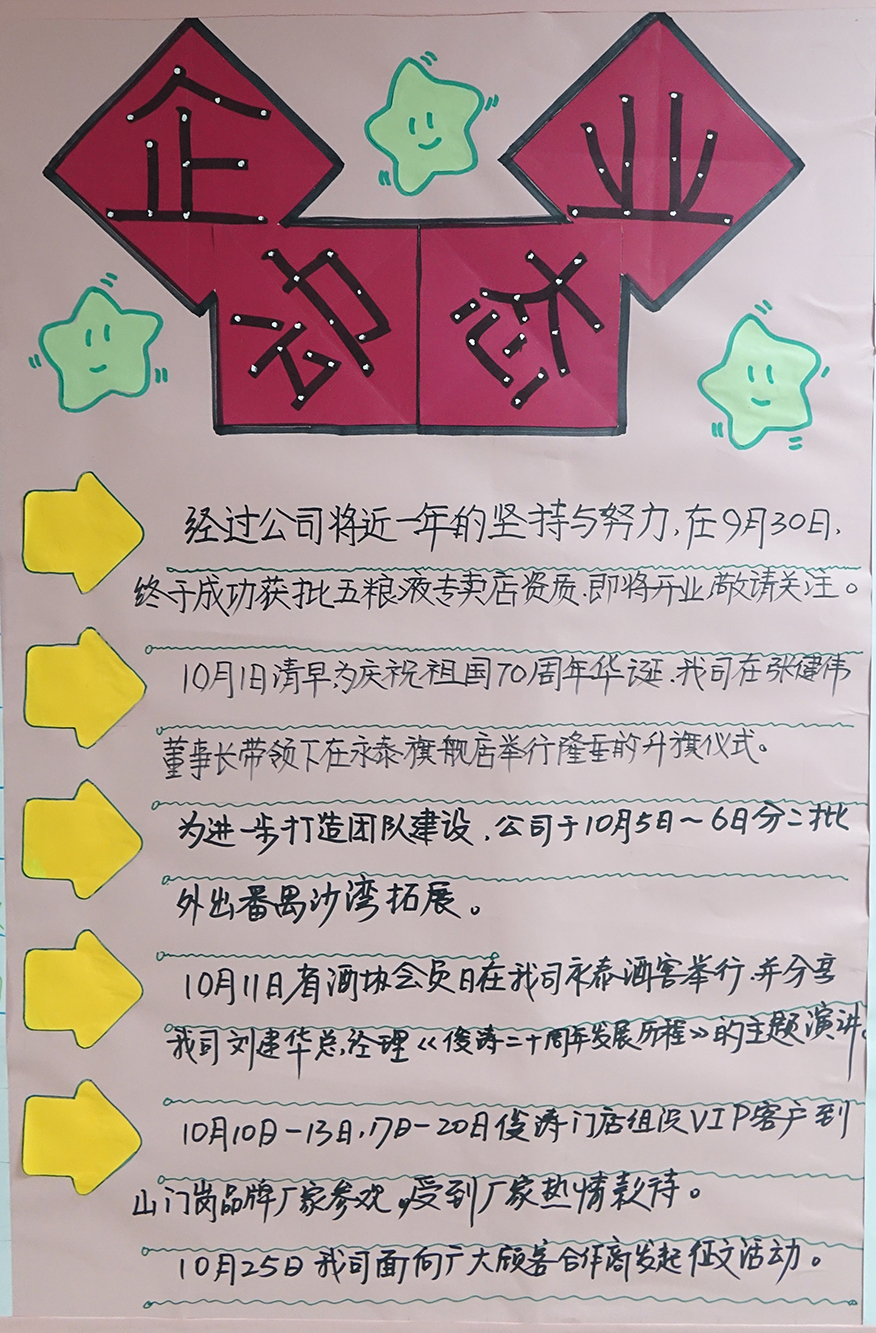 企业
动态
经过公司将近一年的坚持与努力,在9月30日,
终于成功获批五粮液专卖店资质.即将开业敬请关注。
10月1日清早为庆祝祖国70周年华诞.我司在张健伟
董事长带领下在永泰旗舰店举行隆重的升旗仪式。
为进一步打造团队建设,公司于10月5日~6日分二批
外出番禺沙湾拓展。
10月11日省酒协会员日在我司永泰酒窖举行.并分享
我司刘建华总经理《俊涛二十周年发展历程》的主题演讲。
10月10日-13日,17日-20日俊涛门店组织VIP客户到
山门岗品牌厂家参观,受到厂家热情款待。
10月25日我司面向广大顾客合作商发起征文活动。